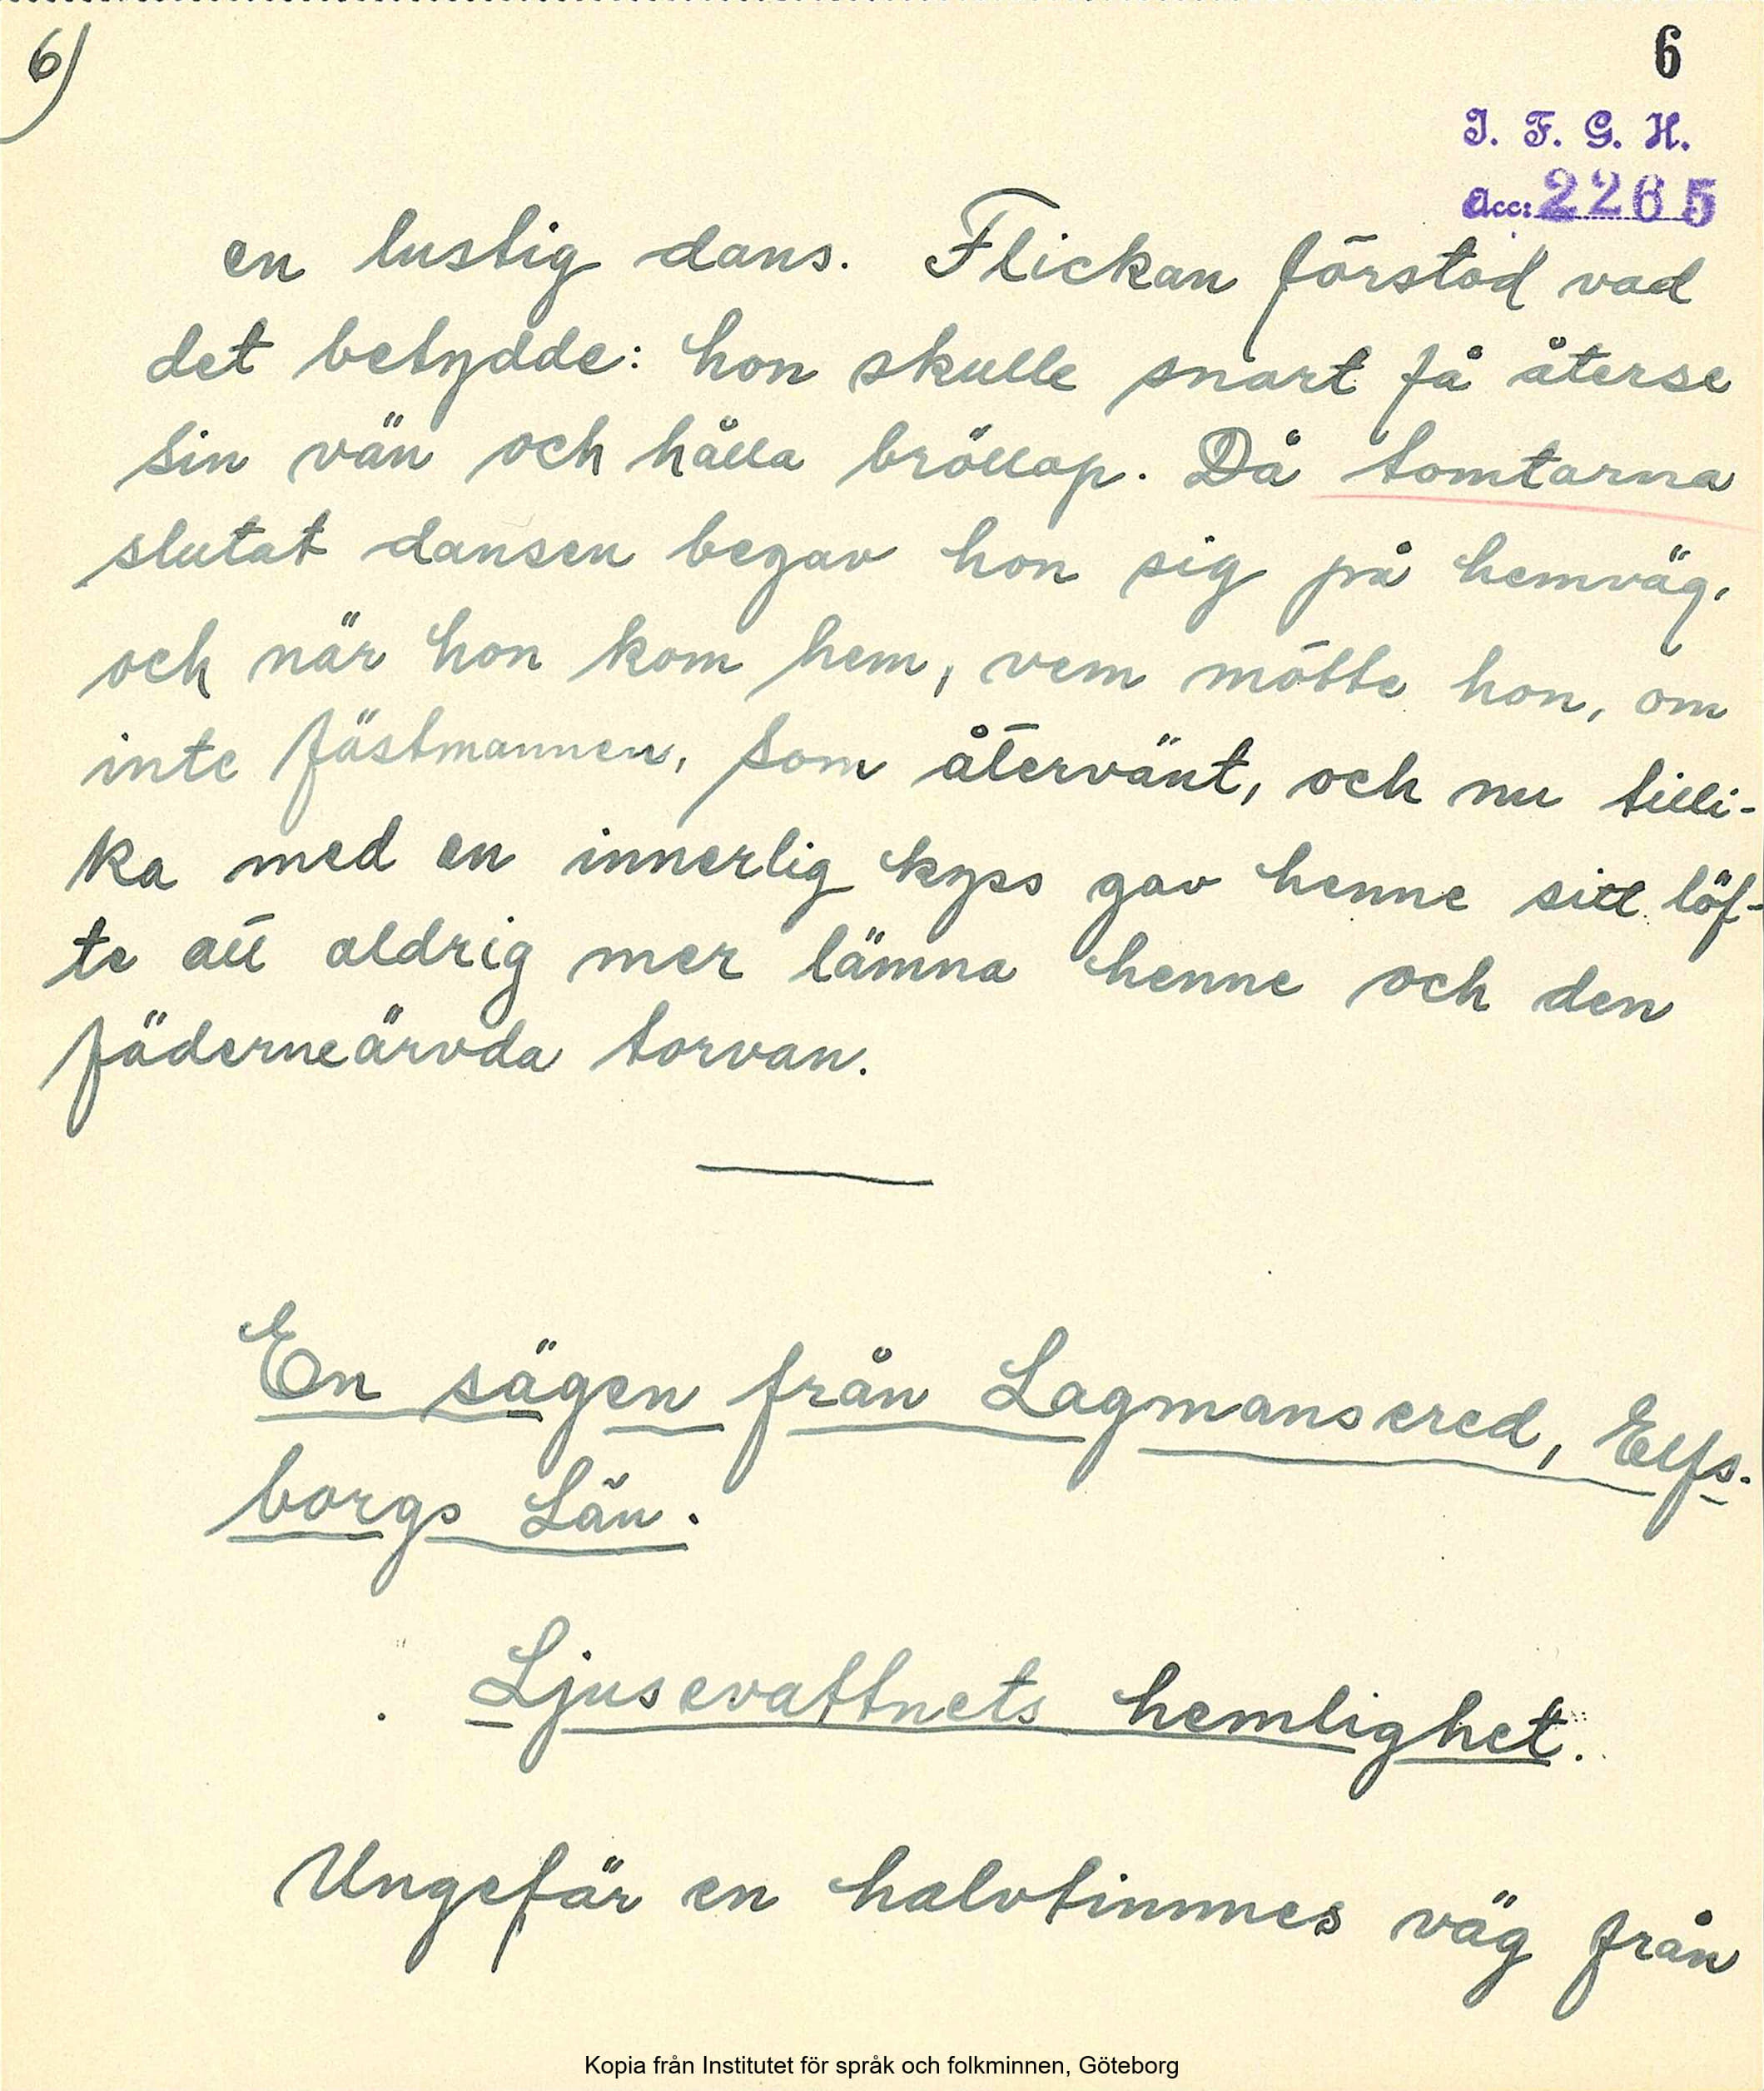 6)
6
I. F. G. H.
Acc: 2265
en lustig dans. Flickan förstod vad
det betydde: hon skulle snart få återse
sin vän och hålla bröllop. Då tomtarna
slutat dansen begav hon sig på hemväg,
och när hon kom hem, vem mötte hon, om
inte fästmannen, som återvänt, och nu tilli-
ka med en innerlig kyss gav henne sitt löf-
te att aldrig mer lämna henne och den
fäderneärvda torvan.
En sägen från Lagmansered, Elfs-
borgs Län.
Ljusevattnets hemlighet.
Ungefär en halvtimmes väg från
Kopia från Institutet för språk och folkminnen, Göteborg